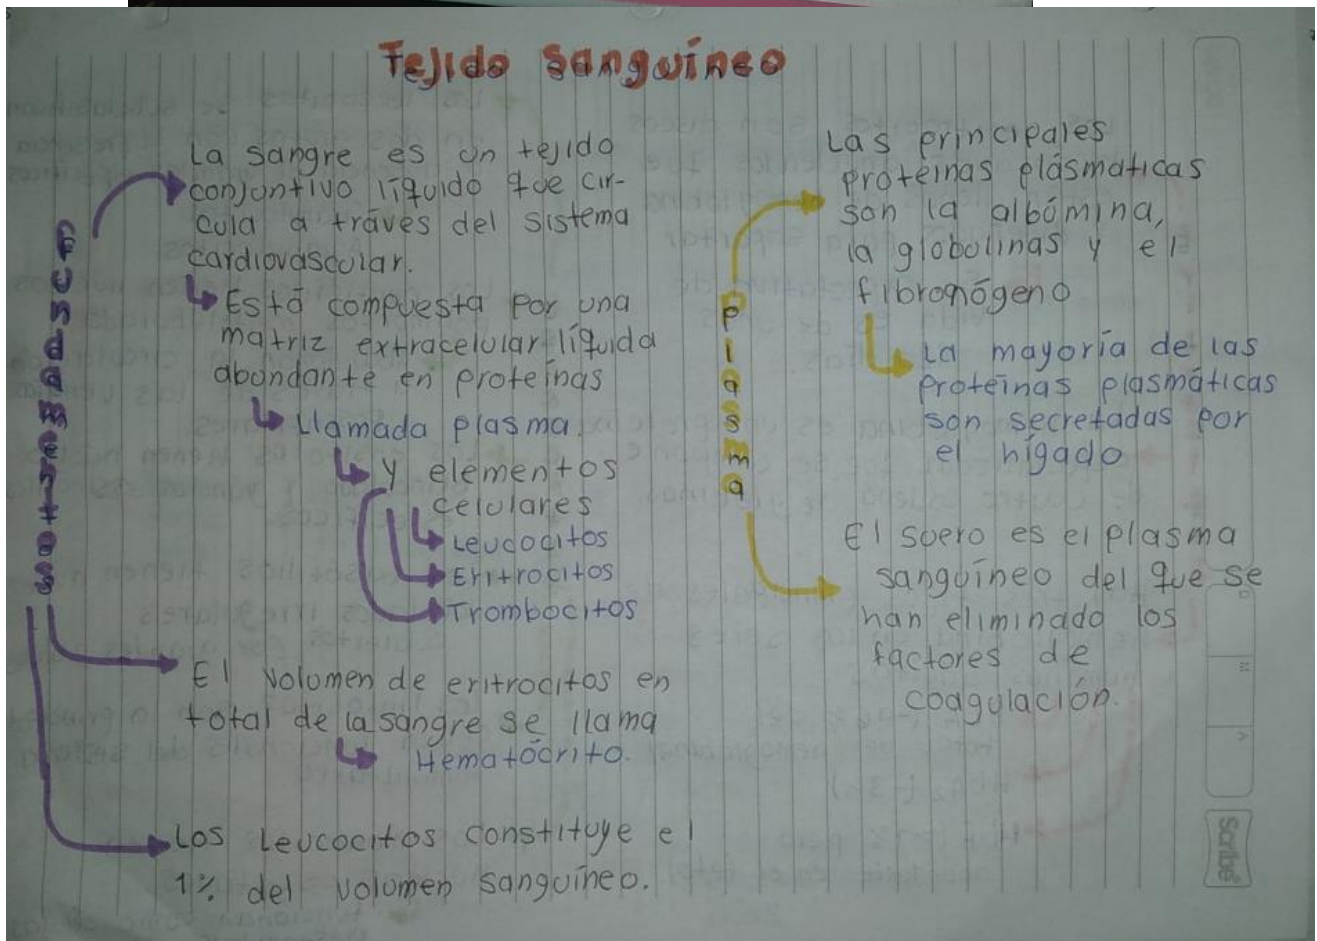 Tejido Sanguíneo
La sangre es un tejido
conjuntivo líquido que cir-
cula a tráves del sistema
cardiovascular.
Está compuesta por una
matriz extracelular líquida
abundante en proteínas
Llamada plasma.
y elementos
celulares
Leucocitos
Eritrocitos
Trombocitos
El volumen de eritrocitos en
total de la sangre se llama
Hematócrito.
Los Leucocitos constituye el
1% del volumen sanguíneo.
Plasma
Las principales
proteinas plásmaticas
son la albúmina,
la globulinas y él
fibronógeno
La mayoría de las
Proteínas plasmáticas
son secretadas por
el hígado
El suero es el plasma
sanguíneo del que se
han eliminado los
factores de
coagulación.
Scribe